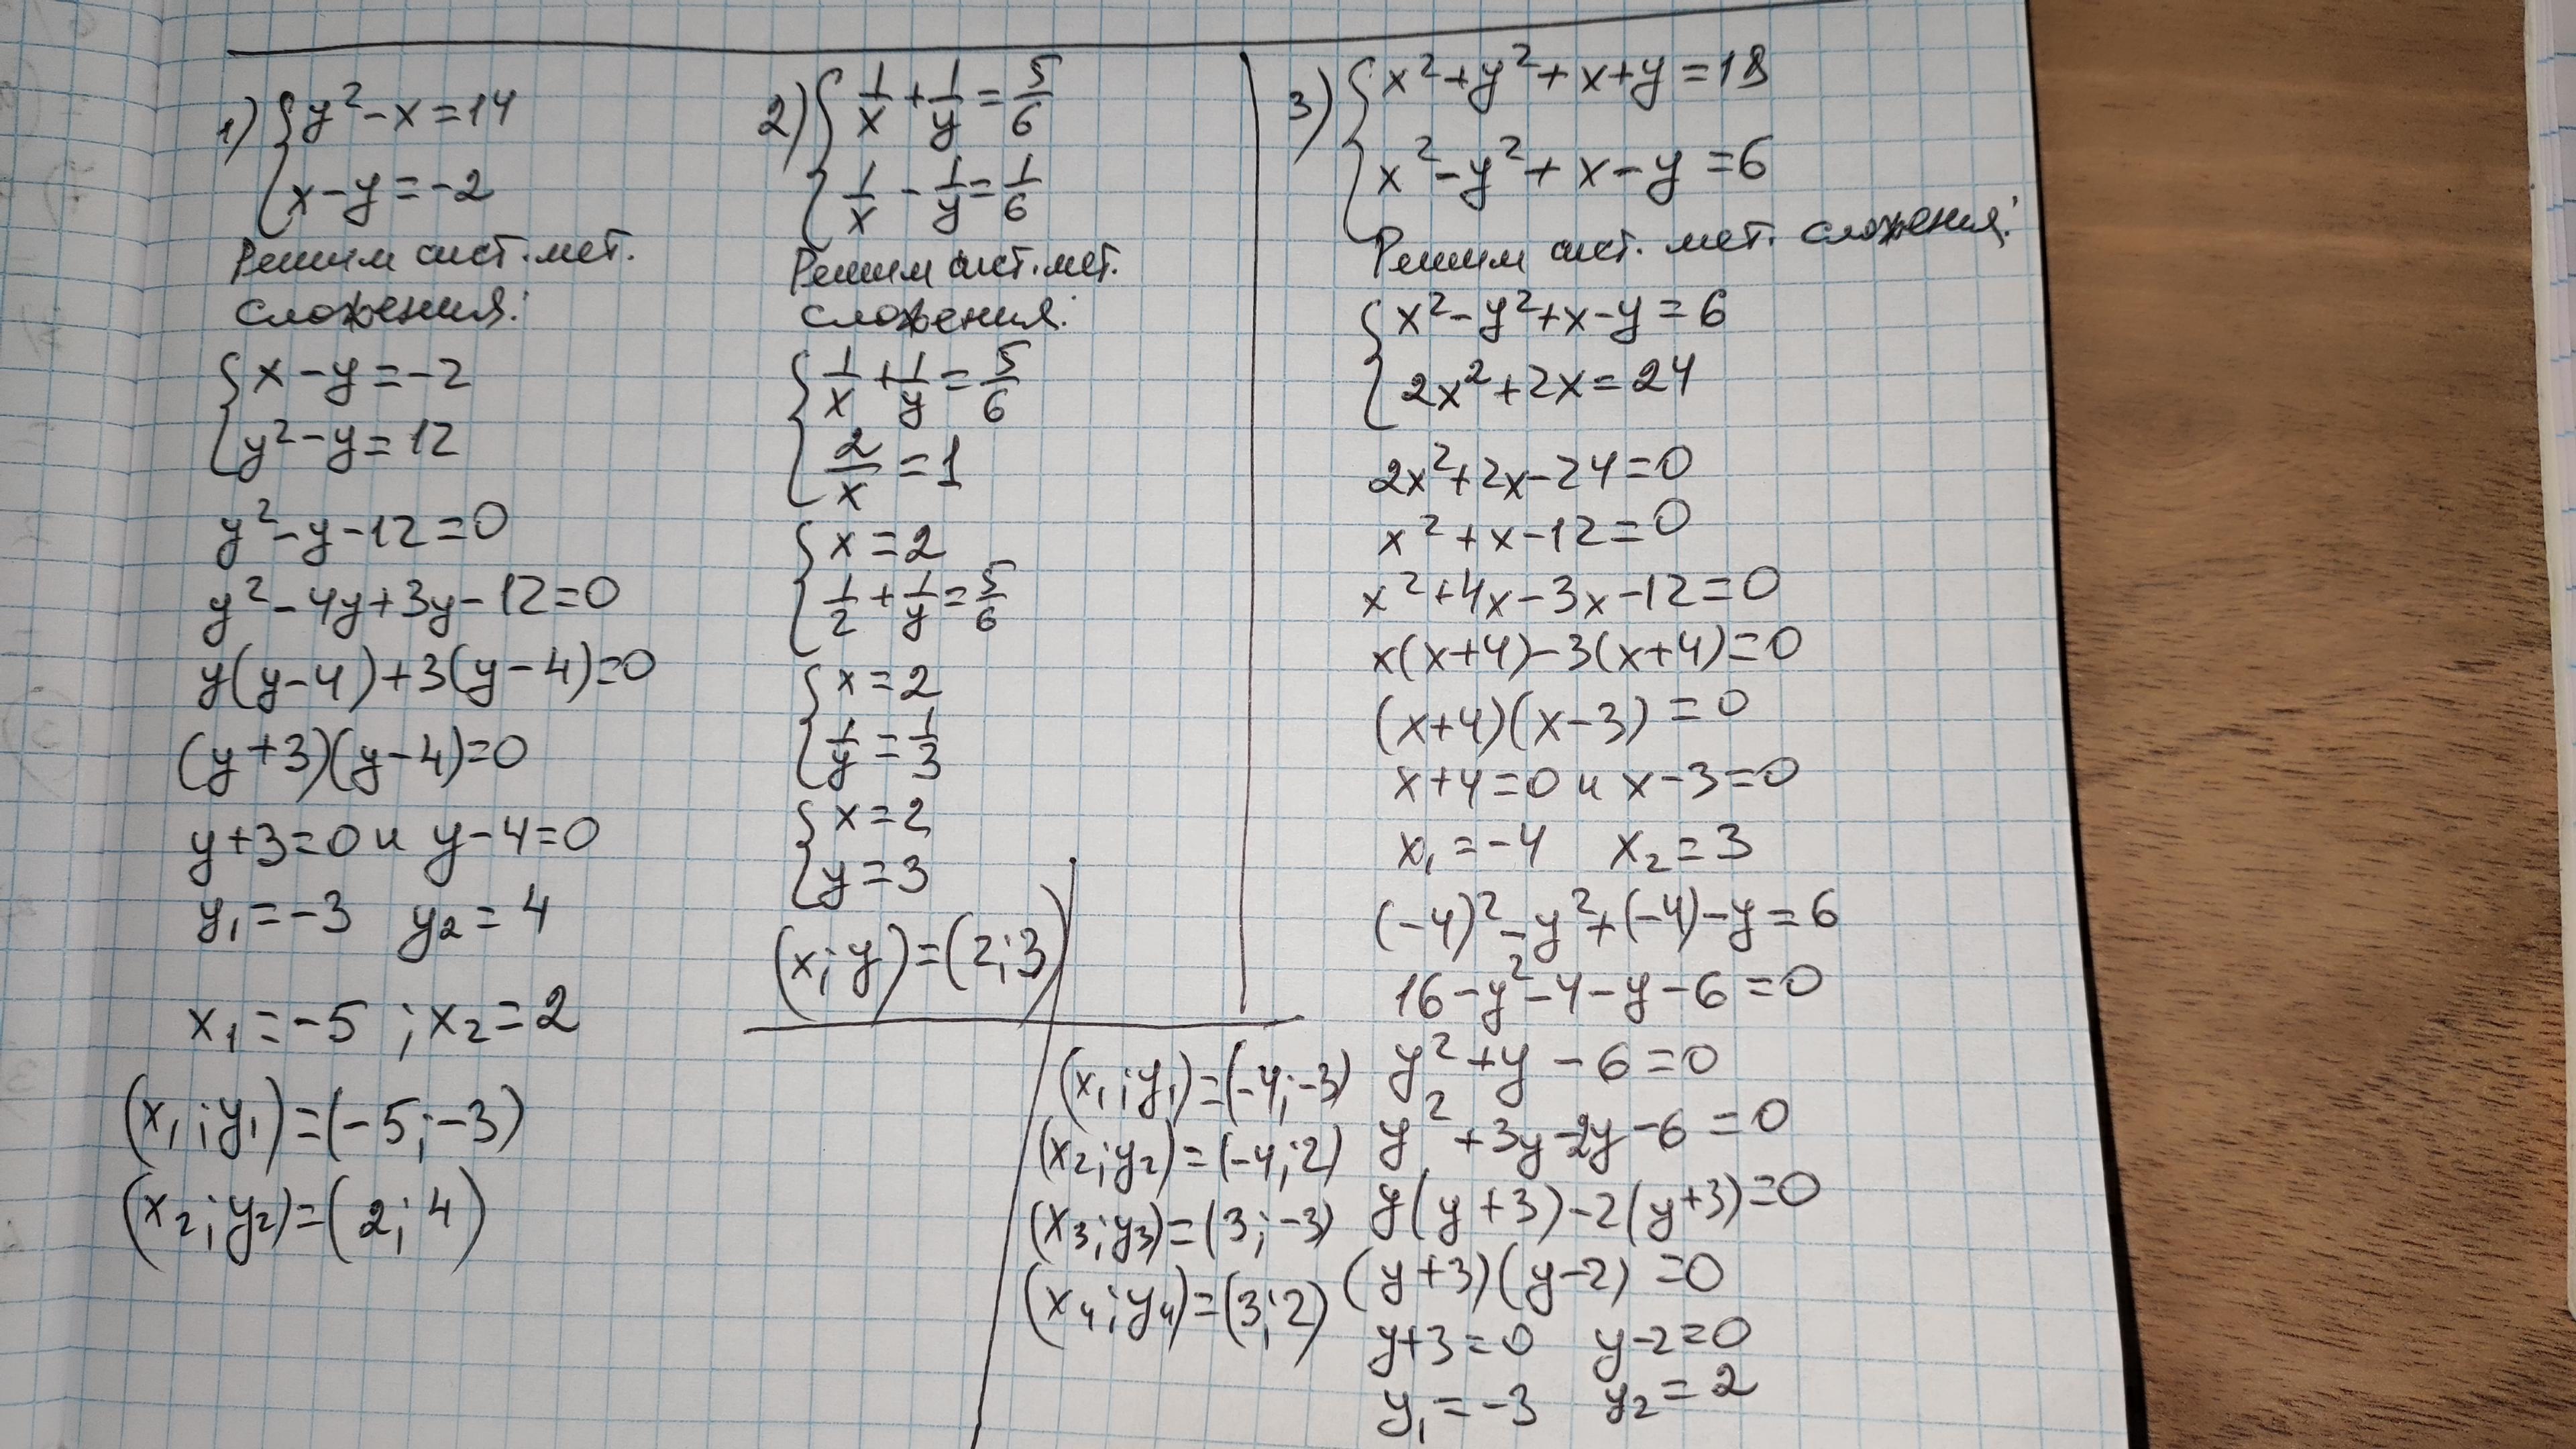 1) { y² - x = 14
x - y = -2
Решим сист. мет.
сложения:
{ x - y = -2
y² - y = 12
y² - y - 12 = 0
y² - 4y + 3y - 12 = 0
y(y - 4) + 3(y - 4) = 0
(y + 3)(y - 4) = 0
y + 3 = 0 и y - 4 = 0
y₁ = -3 y₂ = 4
x₁ = -5 ; x₂ = 2
(x₁; y₁) = (-5; -3)
(x₂; y₂) = (2; 4)
2) { 1/x + 1/y = 5/6
1/x - 1/y = 1/6
Решим сист. мет.
сложения:
{ 1/x + 1/y = 5/6
2/x = 1
{ x = 2
1/2 + 1/y = 5/6
{ x = 2
1/y = 1/3
{ x = 2
y = 3
(x; y) = (2; 3)
3) { x² + y² + x + y = 18
x² - y² + x - y = 6
Решим сист. мет. сложения:
{ x² - y² + x - y = 6
2x² + 2x = 24
2x² + 2x - 24 = 0
x² + x - 12 = 0
x² + 4x - 3x - 12 = 0
x(x + 4) - 3(x + 4) = 0
(x + 4)(x - 3) = 0
x + 4 = 0 и x - 3 = 0
x₁ = -4 x₂ = 3
(-4)² - y² + (-4) - y = 6
16 - y² - 4 - y - 6 = 0
y² + y - 6 = 0
y² + 3y - 2y - 6 = 0
y(y + 3) - 2(y + 3) = 0
(y + 3)(y - 2) = 0
y + 3 = 0 y - 2 = 0
y₁ = -3 y₂ = 2
(x₁; y₁) = (-4; -3)
(x₂; y₂) = (-4; 2)
(x₃; y₃) = (3; -3)
(x₄; y₄) = (3; 2)